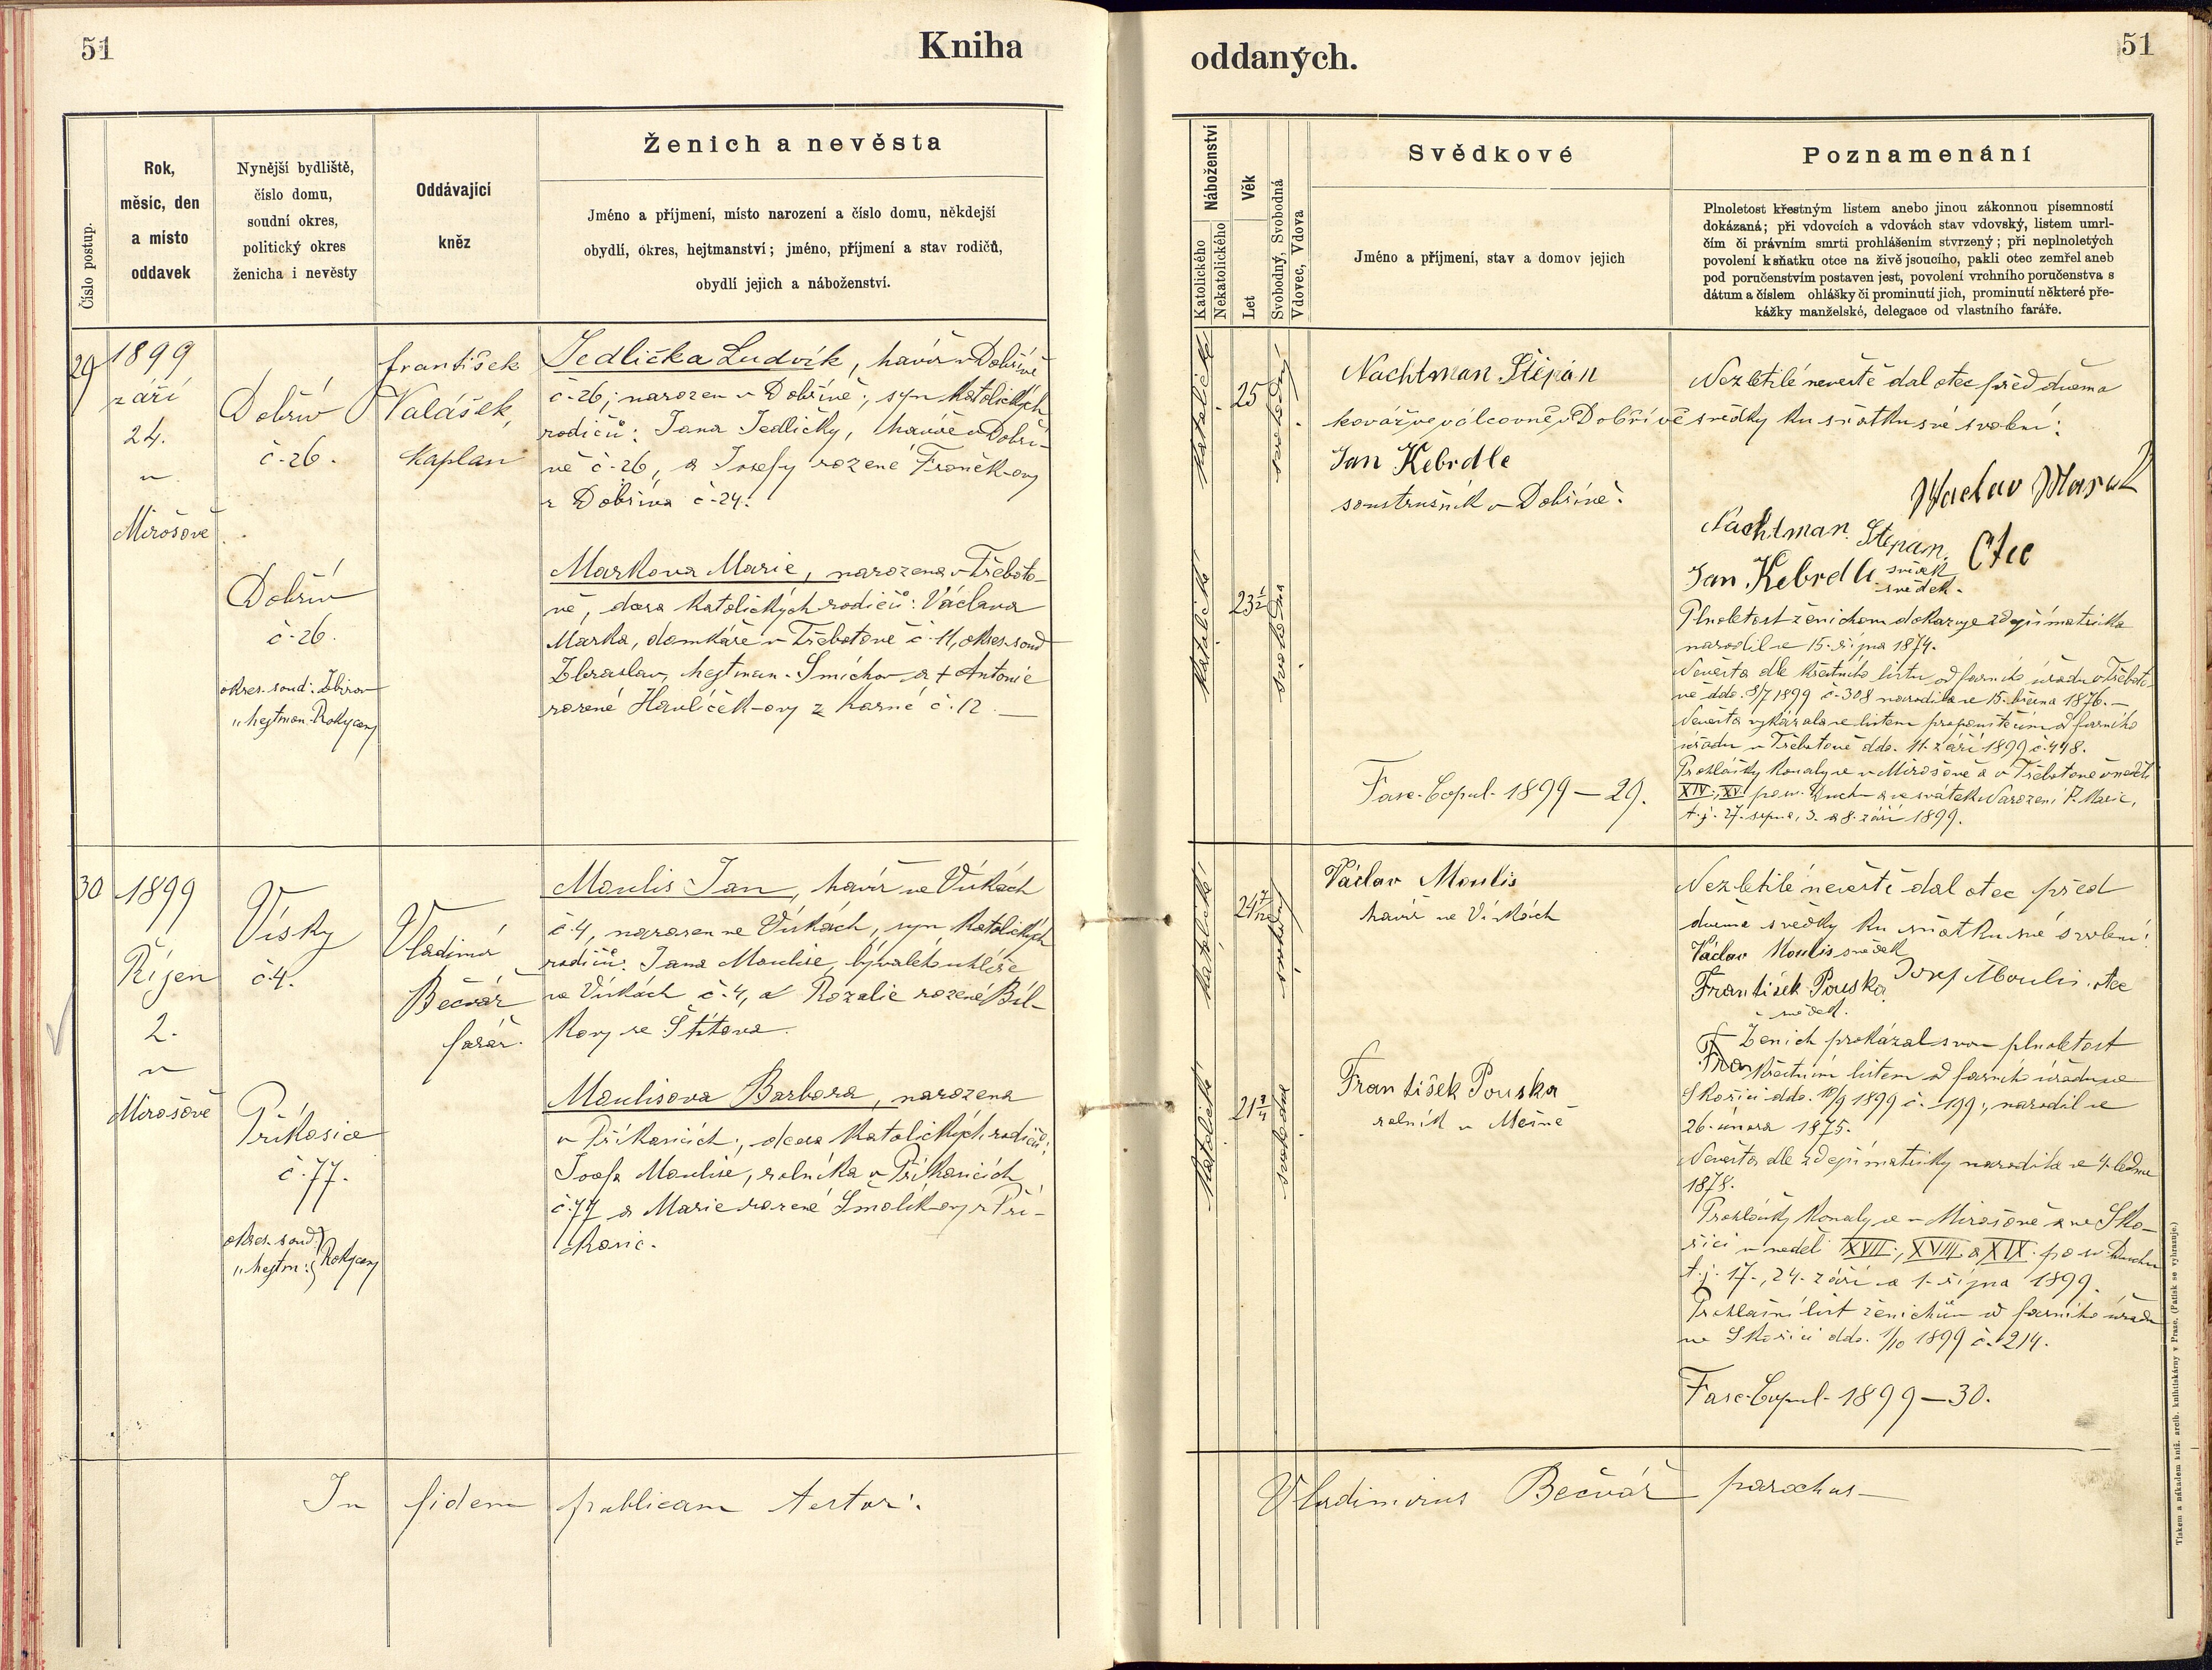 51
Kniha
Číslo postup.
Rok,
měsíc, den
a místo
oddavek
Nynější bydliště,
číslo domu,
soudní okres,
politický okres
ženicha i nevěsty
Oddávající
kněz
Ženich a nevěsta
Jméno a příjmení, místo narození a číslo domu, někdejší
obydlí, okres, hejtmanství; jméno, příjmení a stav rodičů,
obydlí jejich a náboženství.
29
1899
září
24.
v
Mirošově
Dobřív
č. 26.
Dobřív
č. 26.
okres. soud: Zbirov
„ hejtman. Rokycany
František
Valášek,
kaplan
Jedlička Ludvík, havíř v Dobřívě
č. 26; narozen v Dobřívě; syn katolických
rodičů: Jana Jedličky, havíře v Dobří-
vě č. 26, a Josefy rozené Frančkovy
z Dobříva č. 24.
Markova Marie, narozena v Třeboto-
vě, dcera katolických rodičů: Václava
Marka, domkáře v Třebotově č. 11, okres. soud
Zbraslav, hejtman. Smíchov a † Antonie
rozené Havlíčkovy z Karné č. 12.
30
1899
Říjen
2.
v
Mirošově
Vísky
č. 4.
Příkosice
č. 77.
okres. soud.
„ hejtm: Rokycany
Vladimír
Bečvář
farář.
Moulis Jan, havíř ve Vískách
č. 4, narozen ve Vískách, syn katolických
rodičů: Jana Moulise, bývalého uhlíře
ve Vískách č. 4, a Rozalie rozené Bíl-
kovy ze Štítova.
Moulisova Barbora, narozena
v Příkosicích; dcera katolických rodičů:
Josefa Moulise, rolníka v Příkosicích
č. 77 a Marie rozené Smolíkovy z Pří-
kosic.
In fidem publicam testor:
oddaných.
51
Náboženství
Katolického
Nekatolického
Věk
Let
Svobodný, Svobodná
Vdovec, Vdova
Svědkové
Jméno a příjmení, stav a domov jejich
Poznamenání
Plnoletost křestným listem anebo jinou zákonnou písemností
dokázaná; při vdovcích a vdovách stav vdovský, listem umrl-
čím či právním smrti prohlášením stvrzený; při neplnoletých
povolení k sňatku otce na živě jsoucího, pakli otec zemřel aneb
pod poručenstvím postaven jest, povolení vrchního poručenstva s
dátum a číslem ohlášky či prominutí jich, prominutí některé pře-
kážky manželské, delegace od vlastního faráře.
katolické
25
svobodný
katolické
23 1/2
svobodna
Nachtman Štěpán
kovář ve válcovně v Dobřívě
Jan Kebrdle
soustružník v Dobřívě.
Fasc. Copul. 1899 — 29.
Nezletilé nevěstě dal otec před dvěma
svědky ku sňatku své svolení:
Nachtman Štěpan,
svědek
Otec
Jan Kebrdle
svědek.
Plnoletost ženichova dokazuje zdejší matrika
narodil se 15. října 1874.
Nevěsta dle křestního listu od farního úřadu v Třeboto-
vě ddo. 8/7 1899 č. 308 narodila se 15. března 1876. —
Nevěsta vykázala se listem propouštěcím od farního
úřadu v Třebotově ddo. 11. září 1899 č. 448.
Prohlášky konaly se v Mirošově a v Třebotově v neděli
XIV., XV. po sv. Duchu a ve svátek Narození P. Marie,
t. j. 27. srpna, 3. a 8. září 1899.
katolické
24 7/12
svobodný
katolické
21 3/4
svobodna
Václav Moulis
havíř ve Vískách
František Pouska
rolník v Mešně
Nezletilé nevěstě dal otec před
dvěma svědky ku sňatku své svolení!
Václav Moulis svědek
František Pouska
Josef Moulis. otec
svědek.
Ženich prokázal svou plnoletost
křestním listem od farního úřadu ve
Skořici ddo. 10/9 1899 č. 199; narodil se
26. února 1875.
Nevěsta dle zdejší matriky narodila se 4. ledna
1878.
Prohlášky konaly se v Mirošově a ve Sko-
řici v neděli XVII., XVIII. a XIX. po sv. Duchu
t. j. 17., 24. září a 1. října 1899.
Prohlašní list ženichův od farního úřadu
ve Skořici ddo. 1/10 1899 č. 214.
Fasc. Copul. 1899 — 30.
Vladimirus Bečvář parochus
Tiskem a nákladem kníž. arcib. knihtiskárny v Praze. (Patisk se vyhrazuje.)